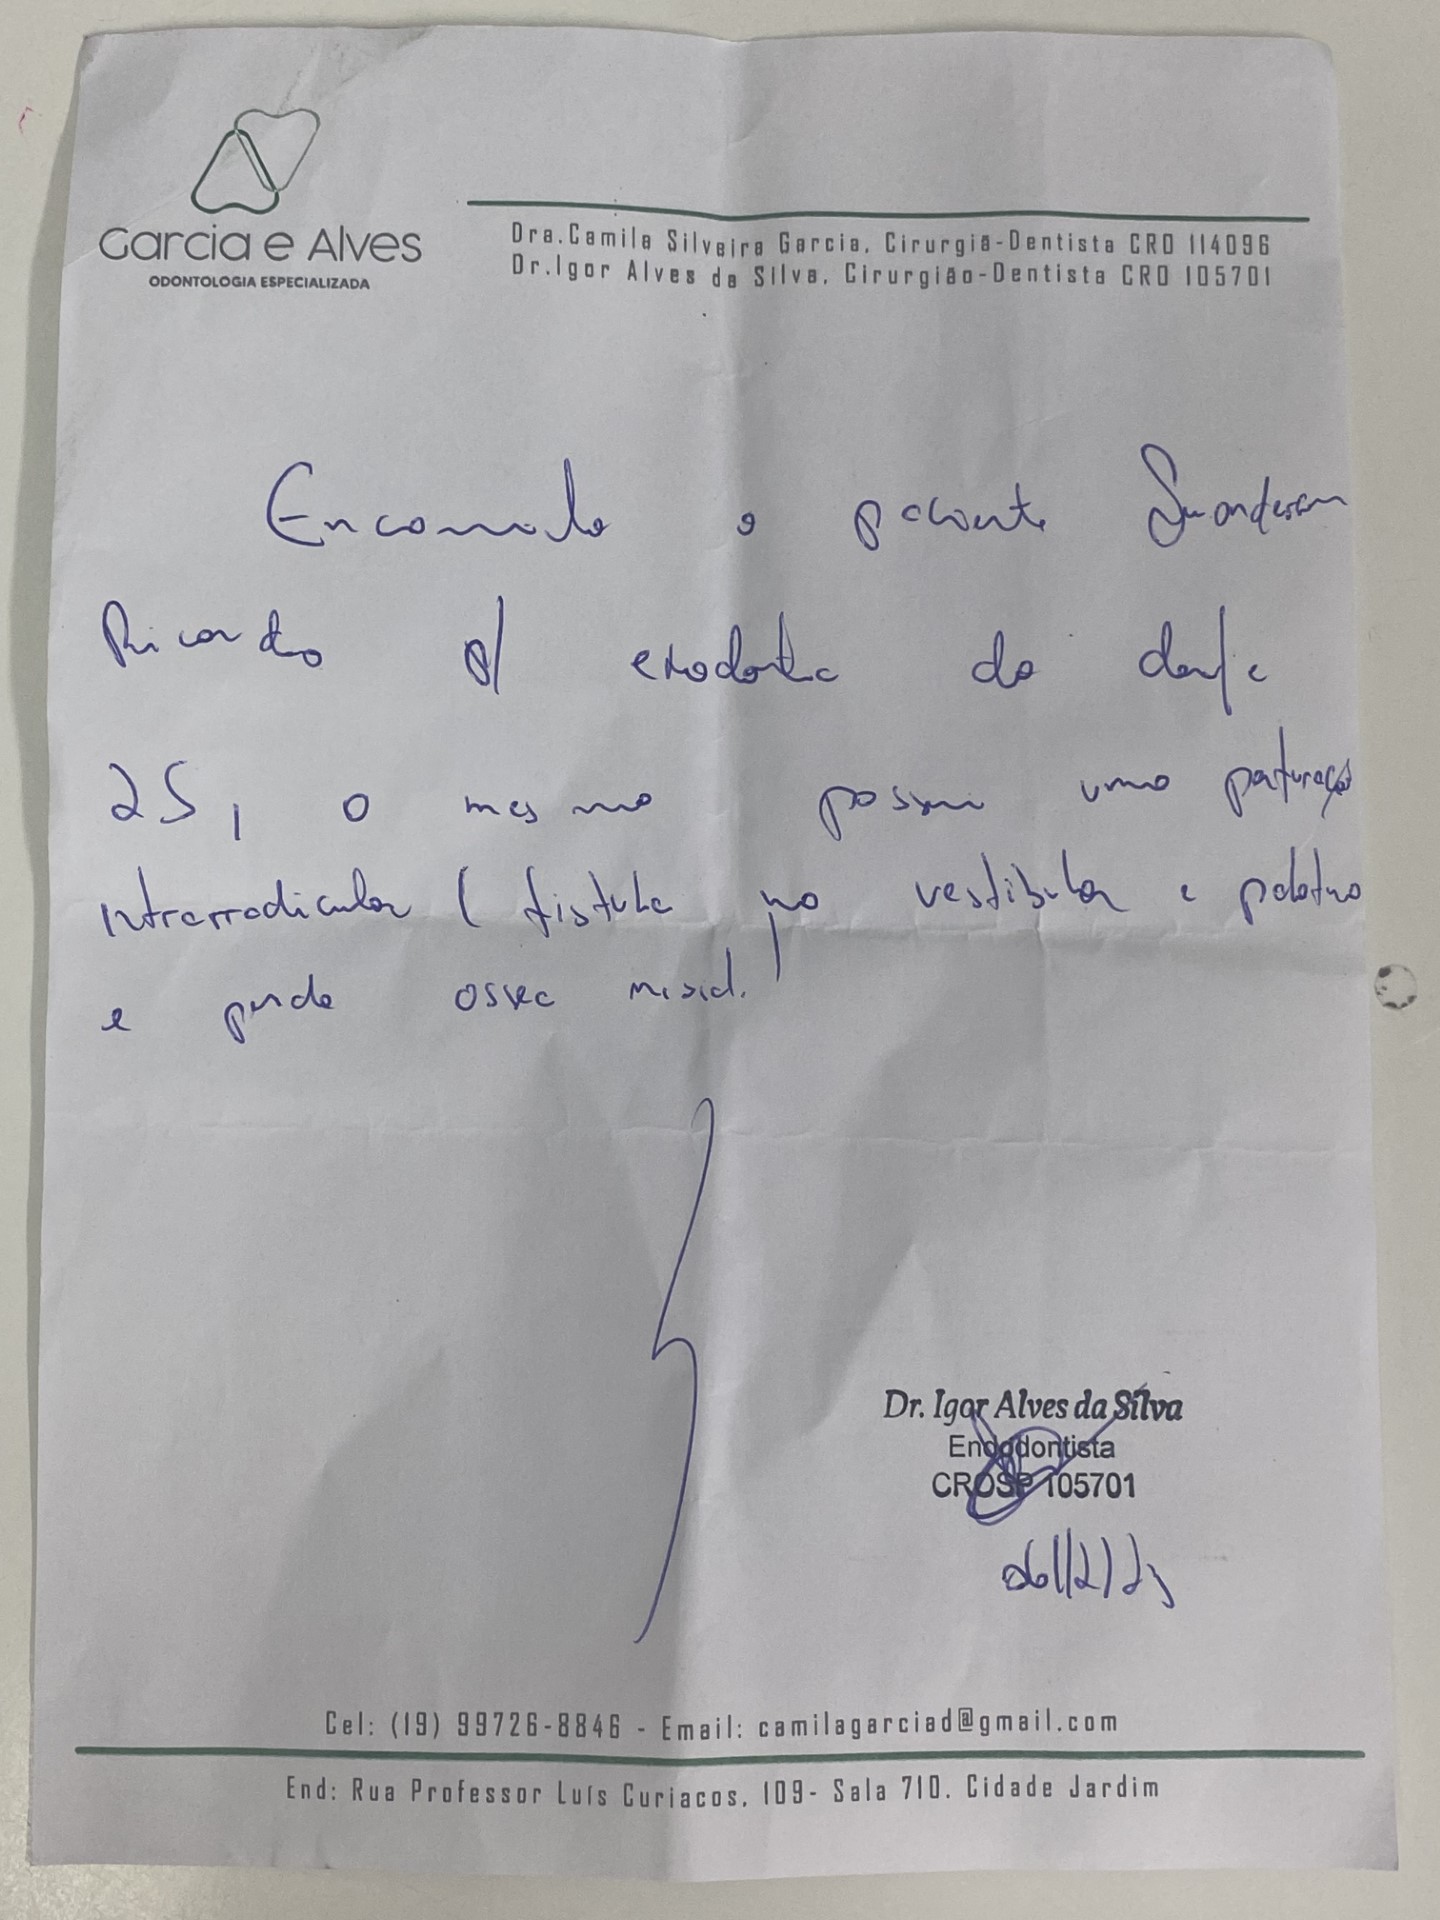 Garcia e Alves
ODONTOLOGIA ESPECIALIZADA
Dra.Camila Silveira Garcia, Cirurgiã-Dentista CRO 114096
Dr.Igor Alves da Silva, Cirurgião-Dentista CRO 105701
Encaminho o paciente
Ricardo p/ exodontia do dente
25, o mesmo possui uma perfuração
intrarradicular ( fistula no vestibular e palatino
e perda ossea
Dr. Igor Alves da Silva
Endodontista
CROSP 105701
Cel: (19) 99726-8846 - Email: camilagarciad@gmail.com
End: Rua Professor Luís Curiacos, 109- Sala 710. Cidade Jardim